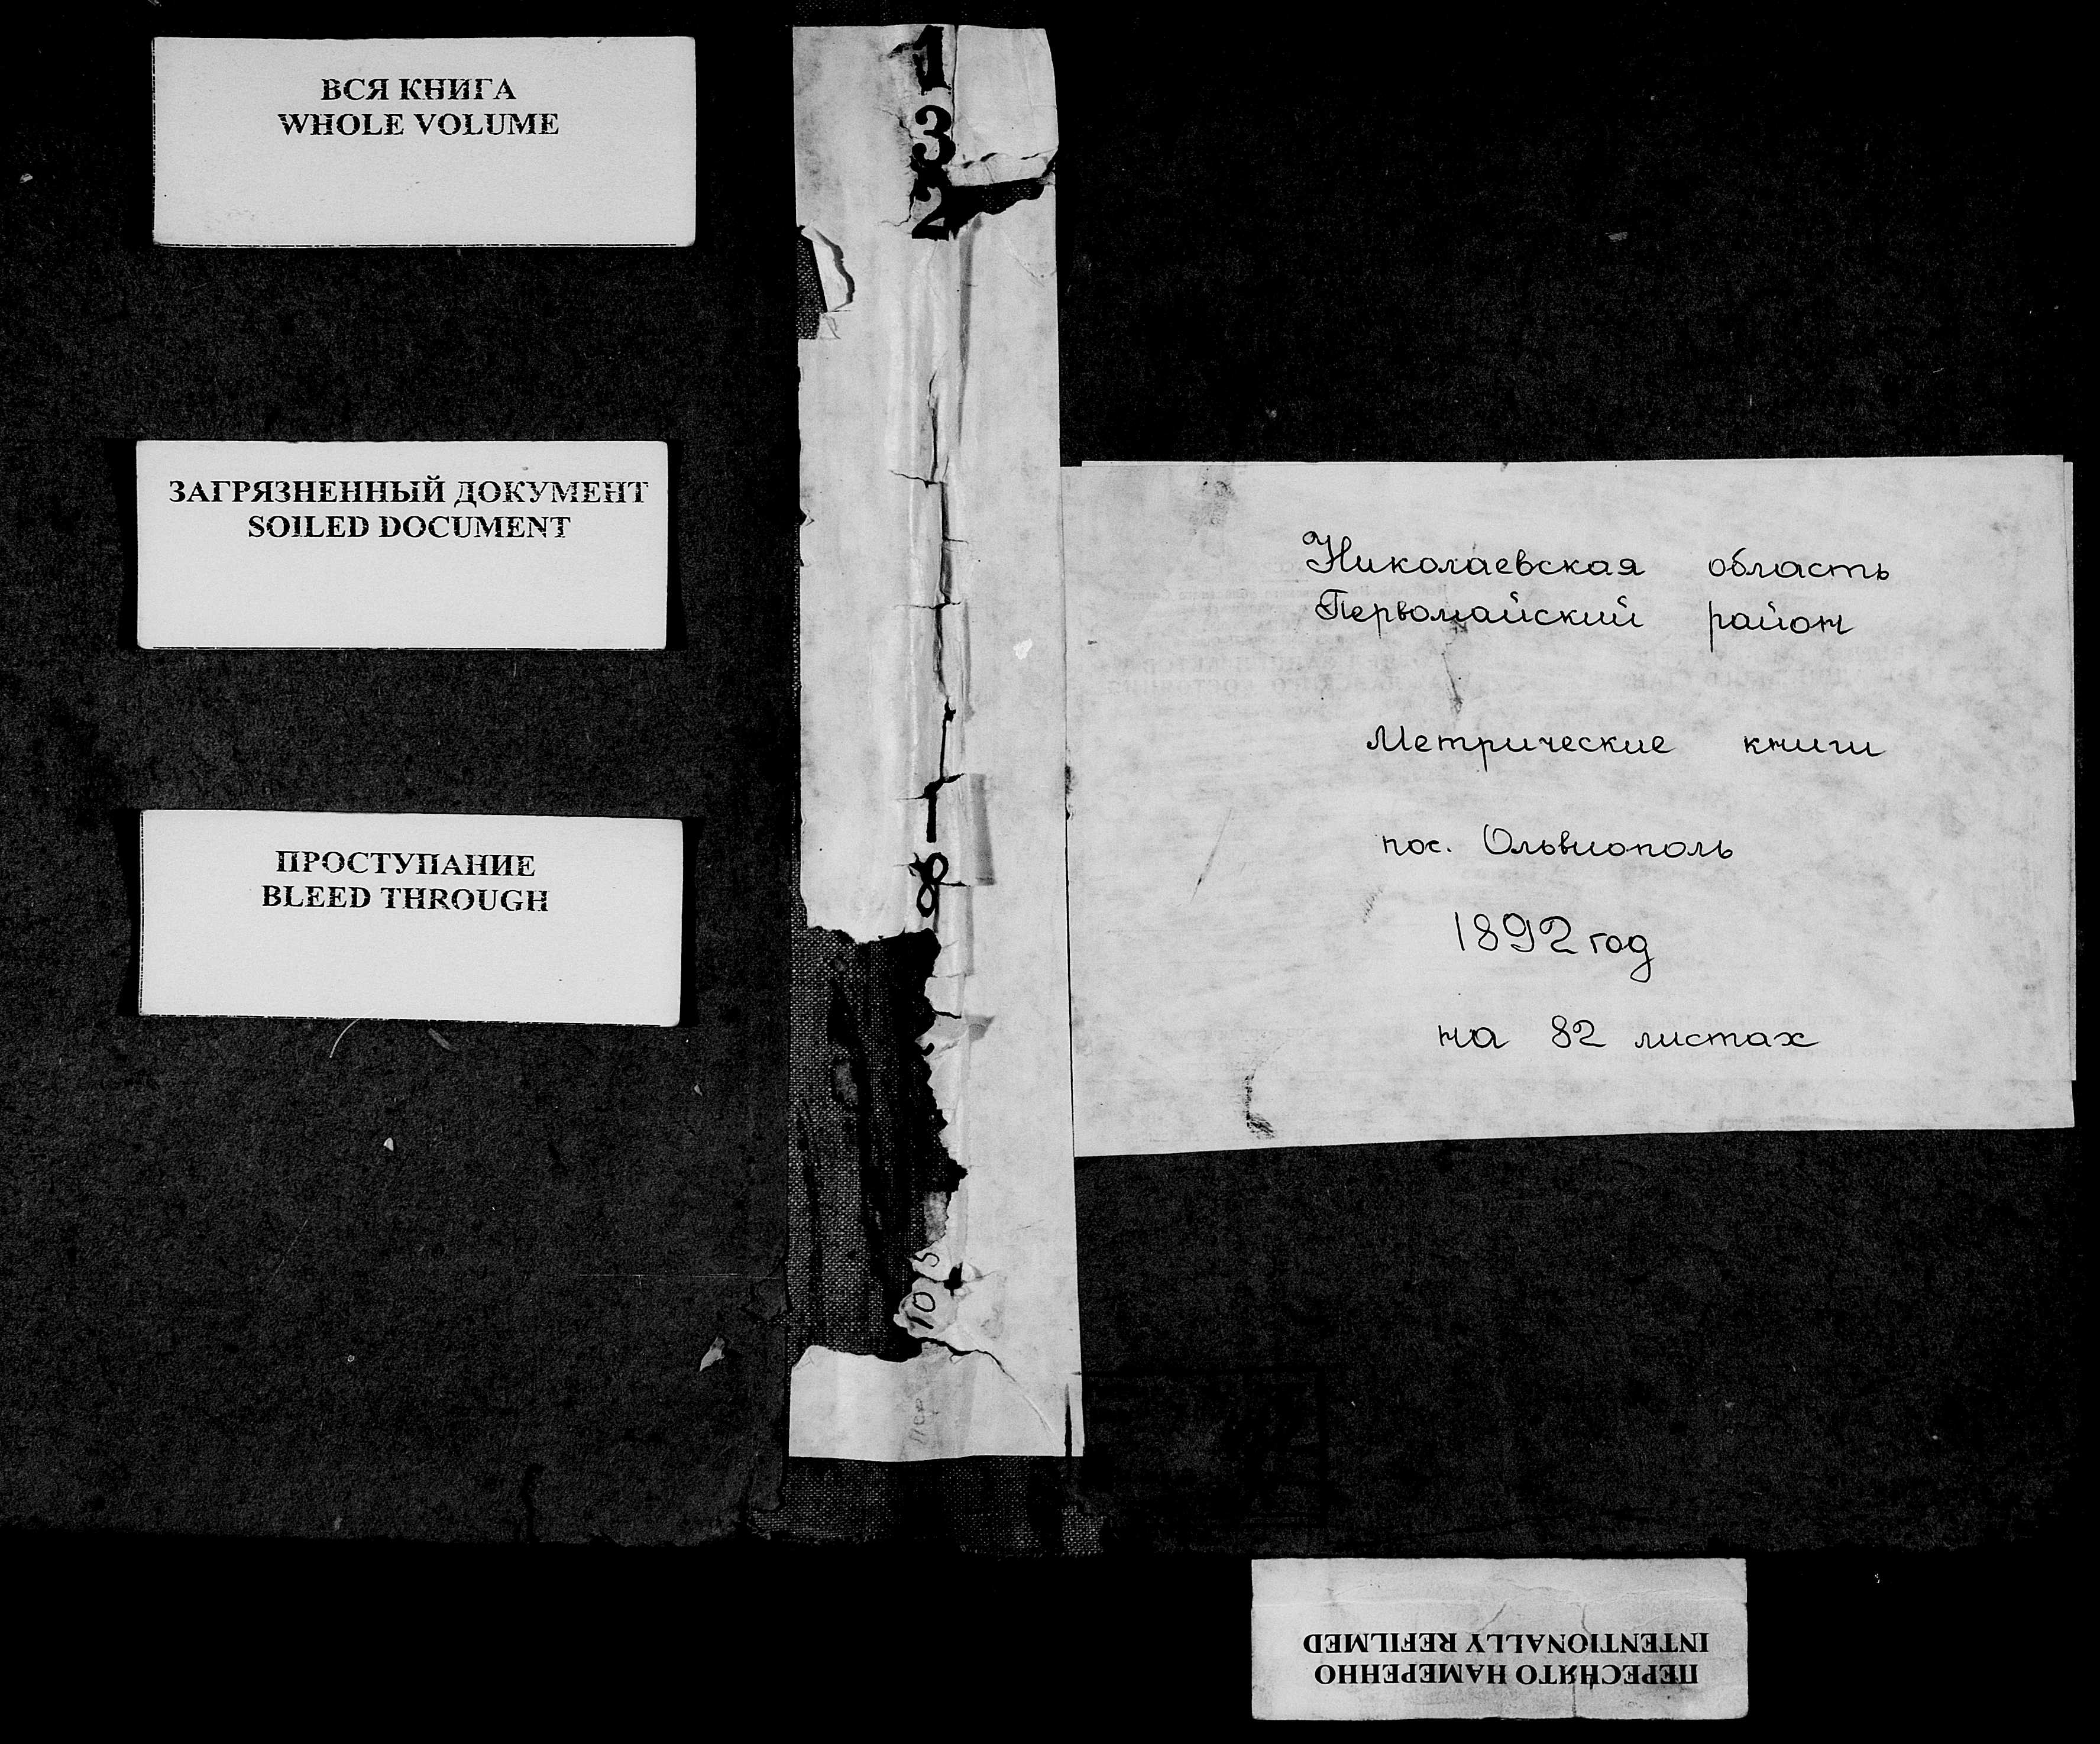 ВСЯ КНИГА
WHOLE VOLUME
ЗАГРЯЗНЕННЫЙ ДОКУМЕНТ
SOILED DOCUMENT
ПРОСТУПАНИЕ
BLEED THROUGH
1
3
2
1
8
Николаевская область
Первомайский район
Метрические книги
пос. Ольвиополь
1892 год
на 82 листах
ПЕРЕСНЯТО НАМЕРЕННО
INTENTIONALLY REFILMED